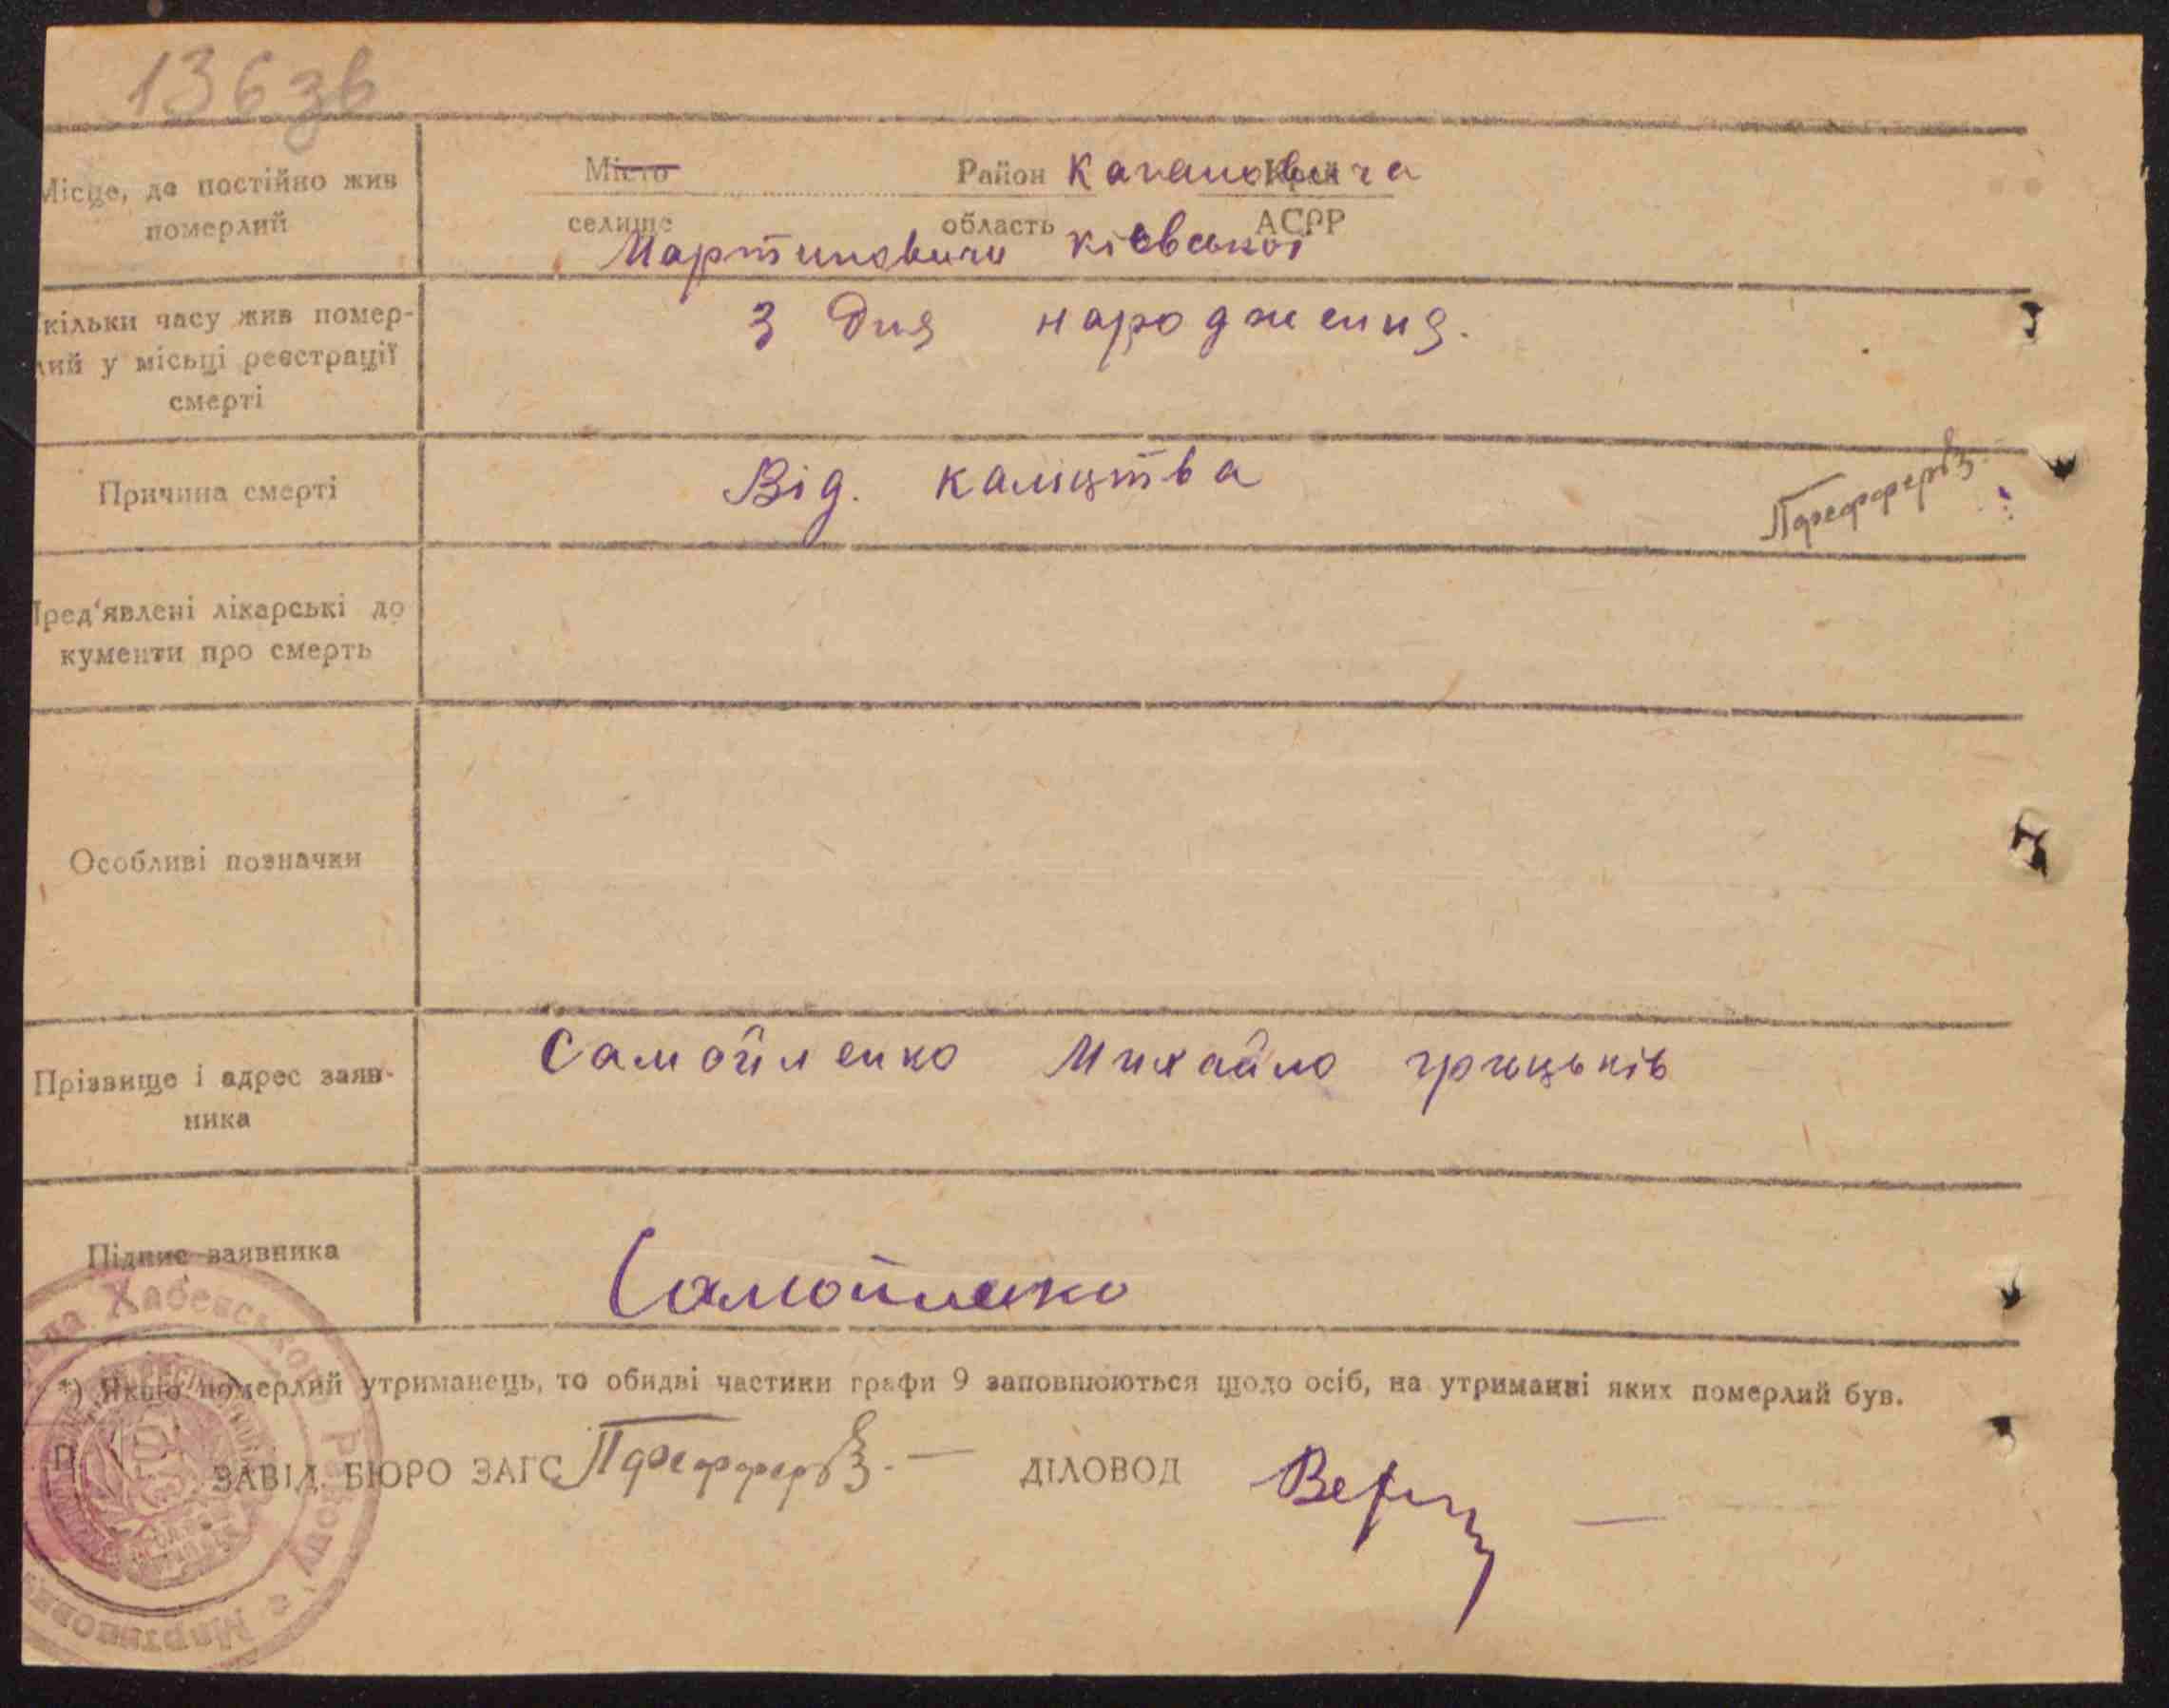 136зв
Місце, де постійно жив
померлий
Місто Район Кагановича Край
селище область АСРР
Мартиновичи Кієвської
кільки часу жив помер-
лий у місьці реєстрації
смерті
З дня народження.
Причина смерті
Від. каліцтва
Пред'явлені лікарські до
кументи про смерть
Особливі позначки
Прізвище і адрес заяв-
ника
Самойленко Михайло грицьків
Підпис заявника
Самойленко
*) Якщо померлий утриманець, то обидві частини графи 9 заповнюються щодо осіб, на утриманні яких померлий був.
ЗАВІД. БЮРО ЗАГС ДІЛОВОД
Хабенського Району с Мартинови